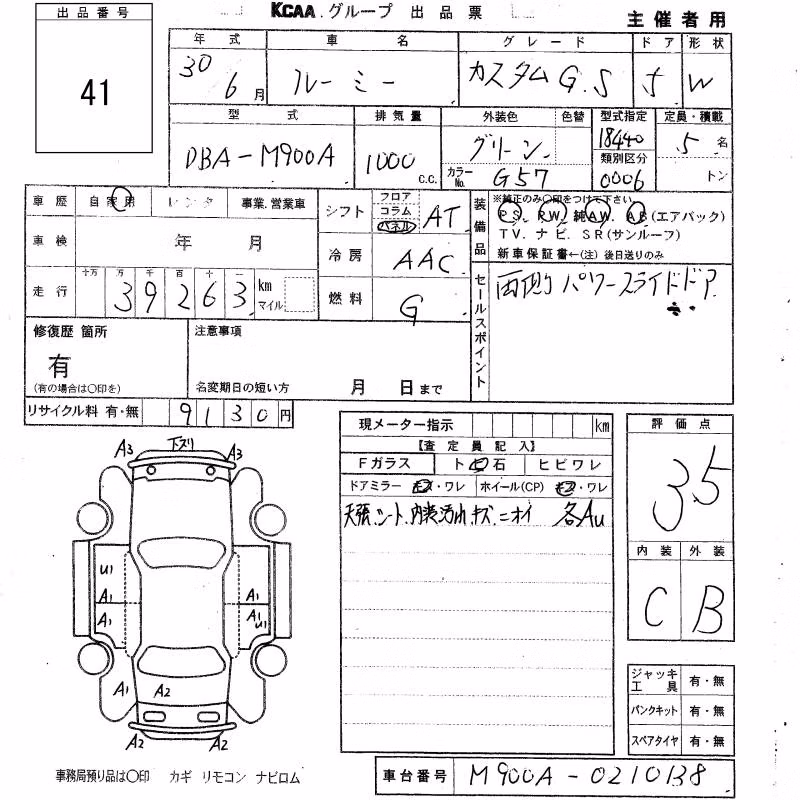 KCAA グループ 出品票
主催者用
出品番号
41
年式 車名 グレード ドア 形状
30 6月 ルーミー カスタムG.S 5 W
型式 排気量 外装色 色替 型式指定 定員・積載
DBA-M900A 1000 C.C. グリーン 18440 5名
カラーNo. G57 類別区分 0006 トン
車歴 自家用 レンタ 事業.営業車
車検 年 月
走行 十万 万 千 百 十 一
39263 km マイル
シフト フロア コラム パネル AT
冷房 AAC
燃料 G
装備品
※純正のみ○印をつけて下さい
PS. PW. 純AW. AB(エアバック)
TV. ナビ. SR(サンルーフ)
新車保証書←(注) 後日送りのみ
セールスポイント
両側パワースライドドア
修復歴 箇所
有
(有の場合は○印を)
注意事項
名変期日の短い方 月 日まで
リサイクル料 有・無 9130円
現メーター指示 km
【査定員記入】
Fガラス ト 石 ヒビワレ
ドアミラー キズ・ワレ ホイール(CP) キズ・ワレ
天張.シート.内装汚れ.キズ.ニオイ 各Au
評価点
3.5
内装 外装
C B
ジャッキ工具 有・無
パンクキット 有・無
スペアタイヤ 有・無
A3 下スリ A3
U1
A1 A1
A1 A1
U1
A1 A2
A2 A2
事務局預り品は○印 カギ リモコン ナビロム
車台番号 M900A-0210138